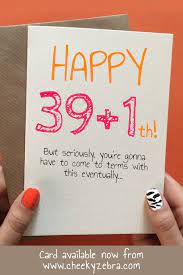 HAPPY
39+1th!
But seriously, you're gonna
have to come to terms with
this eventually...
Card available now from
www.cheekyzebra.com